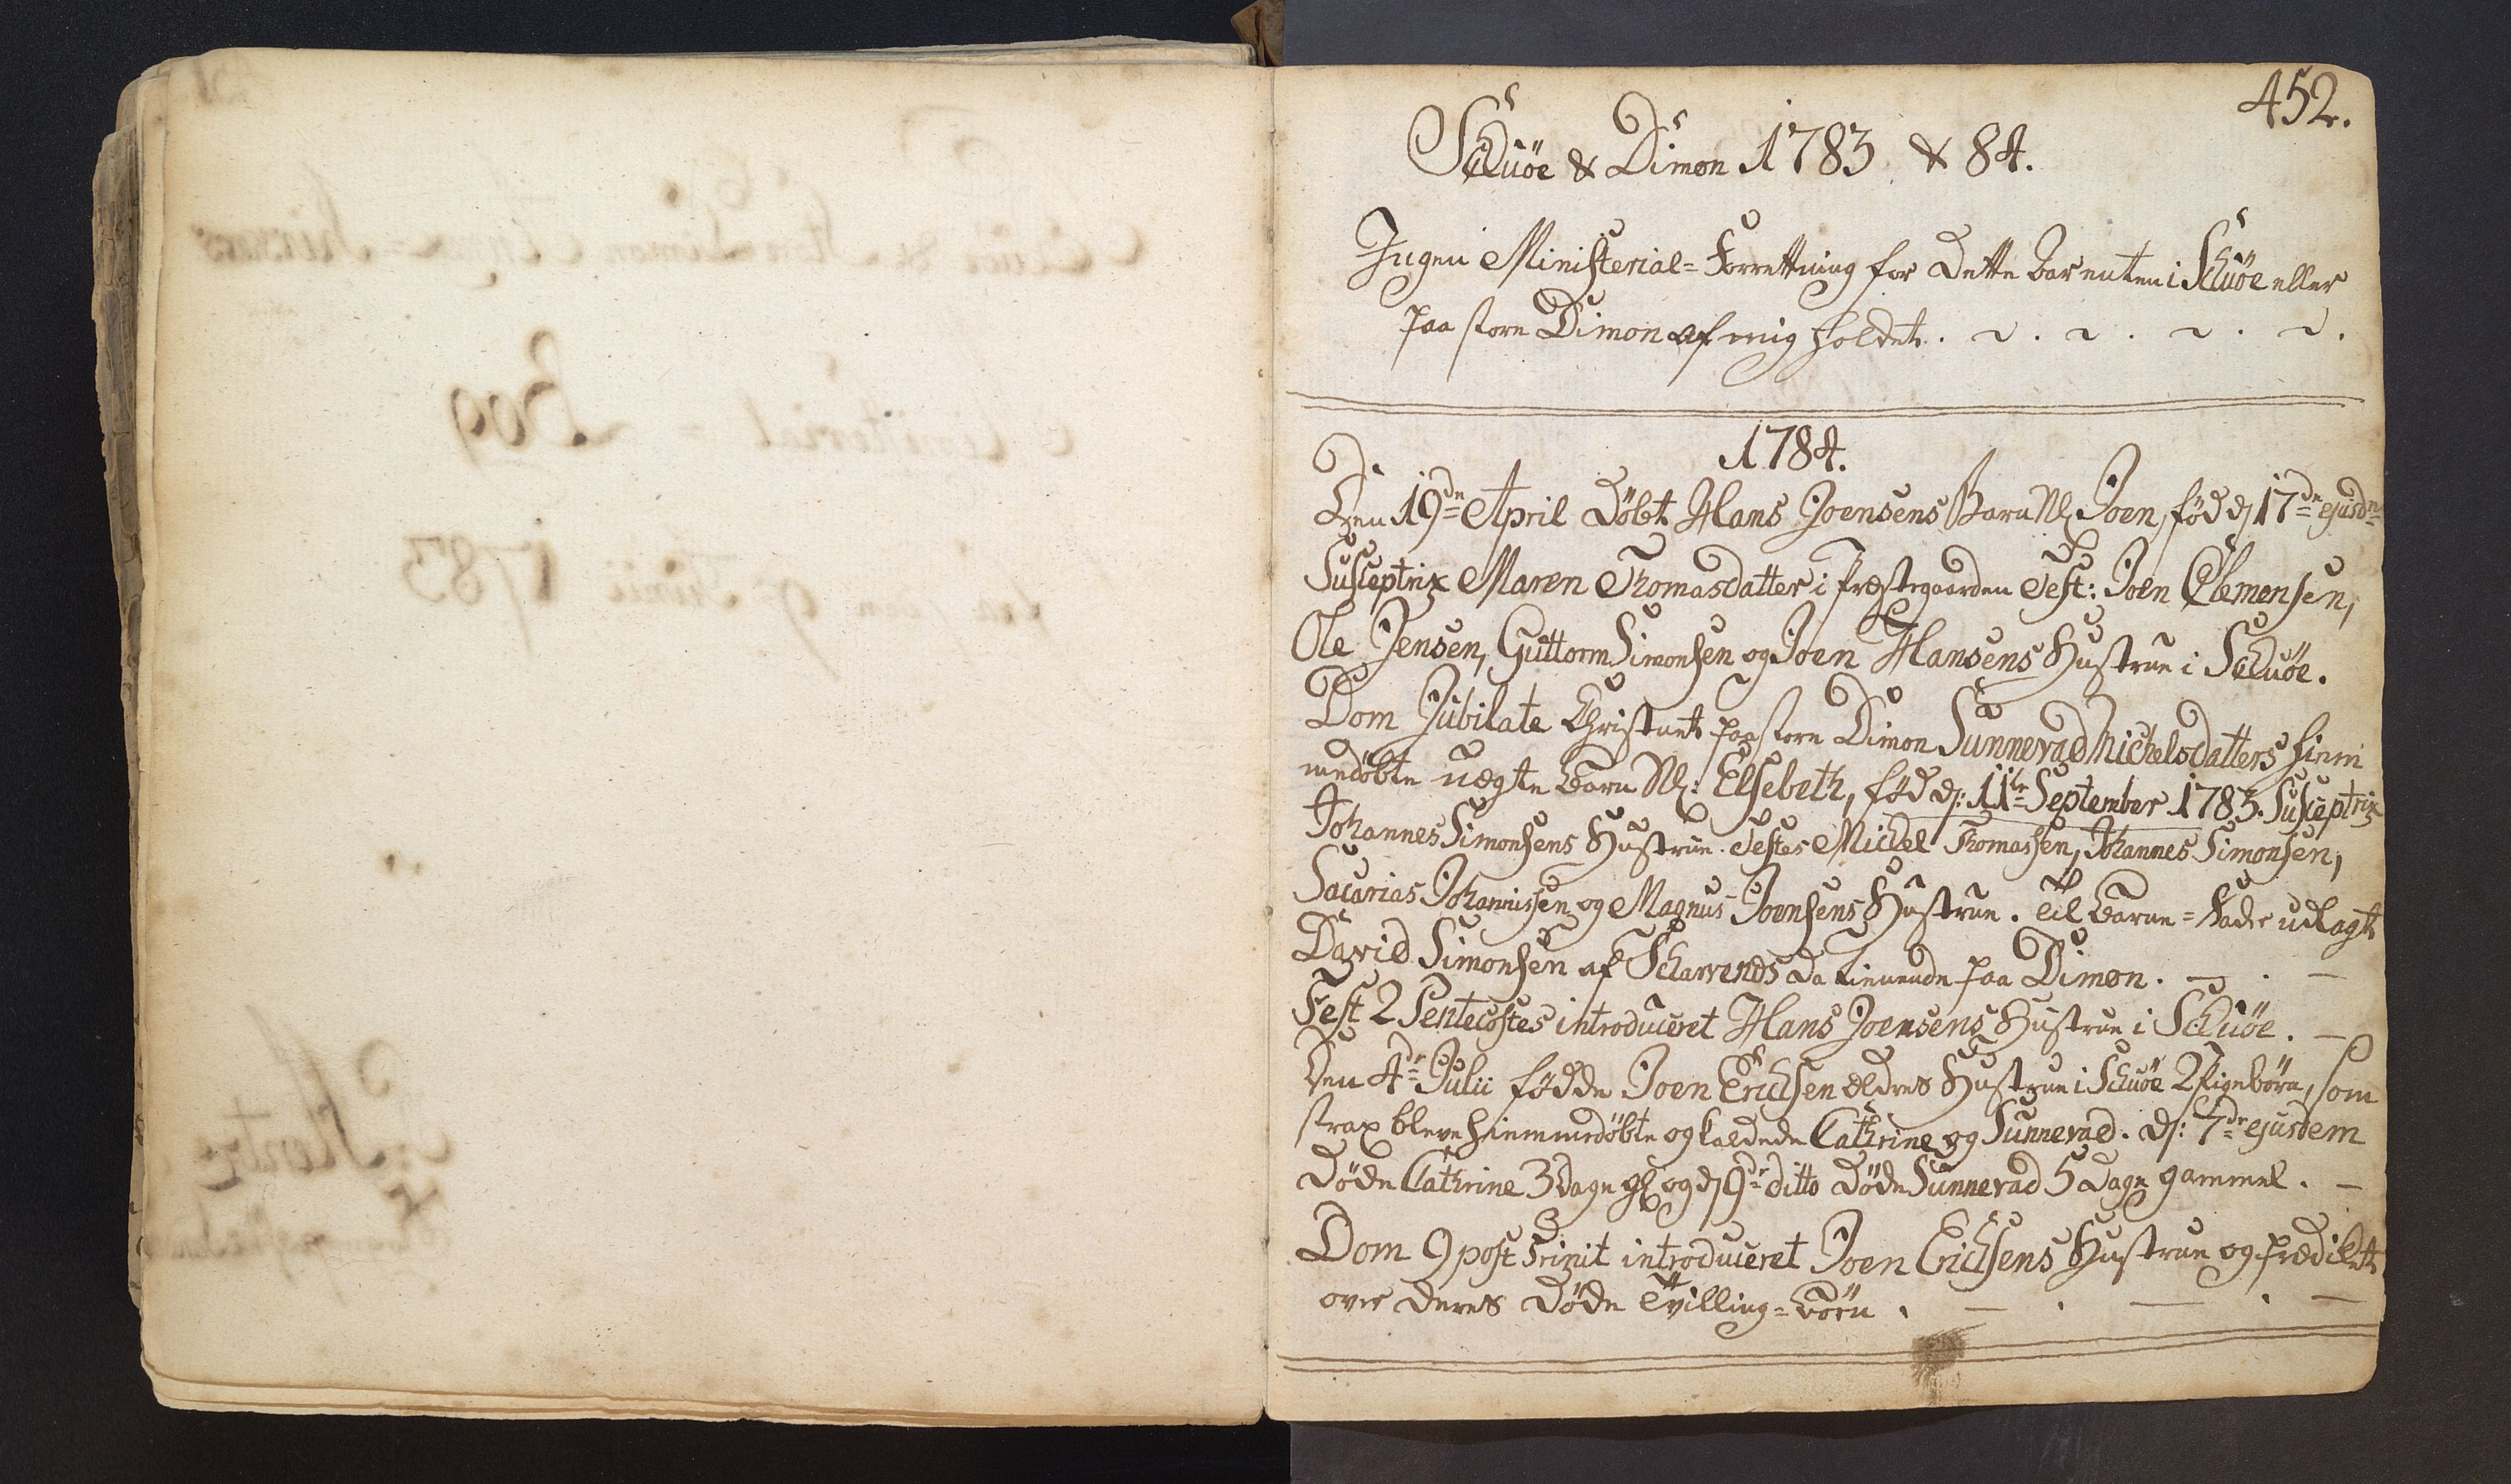 452.
Schuöe & Dimon 1783 & 84.
Ingen Ministerial=Forrettning for dette Aar enten i Schuöe eller
paa store Dimon af mig holdet.
1784.
Den 19de April döbt Hans Joensens Barn Nl. Joen, föd d 17de ejusdm
Susceptrix Maren Thomasdatter i Præstegaarden Test: Joen Clemensen,
Ole Jensen, Guttorm Simonsen og Joen Hansens Hustrue i Schuöe.
Dom Jubilate Christnet paa store Dimon Sunnevad Michelsdatters hiem
medöbte uægte Barn Nl: Elsebeth, föd d: 11te September 1783. Susceptrix
Johannes Simonsens Hustrue. Testes Michel Thomassen, Johannes Simonsen,
Sacarias Johannissen og Magnus Joensens Hustrue. Til Barne=Fader udlagt
David Simonsen af Scharvenes da tienende paa Dimon.
Fest 2 Pentecostes introduceret Hans Joensens Hustrue i Schuöe.
Den 4de Julii födde Joen Erichsen ældres Hustrue i Schuöe 2 Pigebörn, som
strax bleve hiemmedöbte og kaldede Cathrine og Sunnevad. d: 7de ejusdem
döde Cathrine 3 dage gl og d 9de ditto döde Sunnevad 5 dage gammel.
Dom 9 post Trinit introduceret Joen Erichsens Hustrue og prædiket
over deres döde Tvilling=Börn.